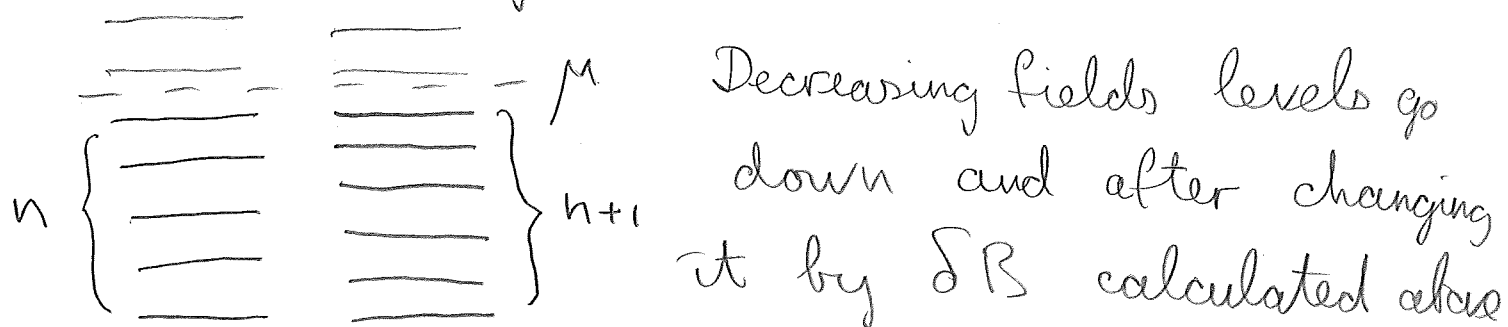 μ
Decreasing fields levels go
down and after changing
n
n+1
it by δB calculated above